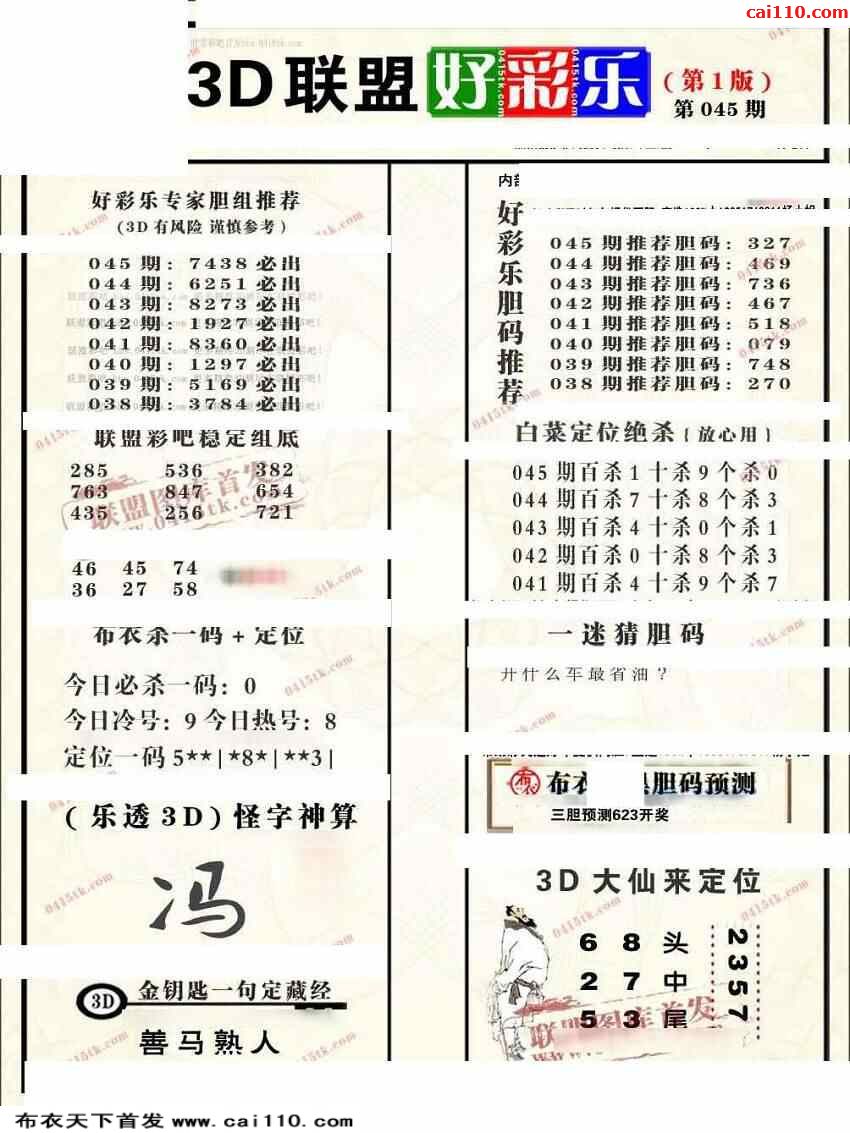 cai110.com
3D联盟好彩乐
(第1版)
第045期
好彩乐专家胆组推荐
(3D有风险 谨慎参考)
045期: 7438必出
044期: 6251必出
043期: 8273必出
042期: 1927必出
041期: 8360必出
040期: 1297必出
039期: 5169必出
038期: 3784必出
联盟彩吧稳定组底
285 536 382
763 847 654
435 256 721
46 45 74
36 27 58
布衣杀一码+定位
今日必杀一码: 0
今日冷号: 9 今日热号: 8
定位一码 5**|*8*|**3|
(乐透3D)怪字神算
冯
3D 金钥匙一句定藏经
善马熟人
好彩乐胆码推荐
045期推荐胆码: 327
044期推荐胆码: 469
043期推荐胆码: 736
042期推荐胆码: 467
041期推荐胆码: 518
040期推荐胆码: 079
039期推荐胆码: 748
038期推荐胆码: 270
白菜定位绝杀{放心用}
045期百杀1十杀9个杀0
044期百杀7十杀8个杀3
043期百杀4十杀0个杀1
042期百杀0十杀8个杀3
041期百杀4十杀9个杀7
一迷猜胆码
开什么车最省油?
布衣 胆码预测
三胆预测623开奖
3D大仙来定位
6 8 头
2 7 中
5 3 尾
2357
联盟图库首发
www.0415tk.com
布衣天下首发 www.cai110.com